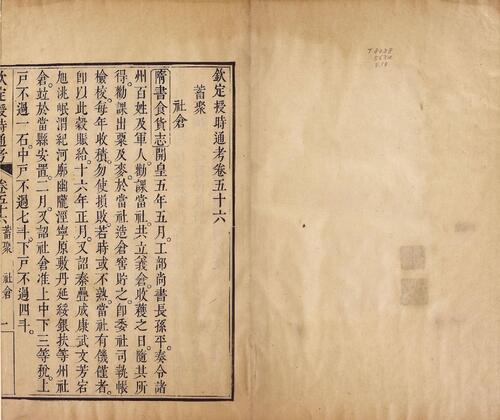 欽定授時通考卷五十六
蓄聚
社倉
隋書食貨志開皇五年五月。工部尚書長孫平。奏令諸
州百姓及軍人。勸課當社。共立義倉。收穫之日。隨其所
得。勸課出粟及麥。於當社造倉窖貯之。即委社司。執帳
檢校。每年收積。勿使損敗。若時或不熟。當社有饑饉者。
即以此穀賑給。十六年正月。又詔秦疊成康武文芳宕
旭洮岷渭紀河廓豳隴涇寧原敷丹延綏銀扶等州社
倉。竝於當縣安置。二月。又詔社倉准上中下三等稅。上
戶不過一石。中戶不過七斗。下戶不過四斗。
欽定授時通考
卷五十六
蓄聚
社倉
一